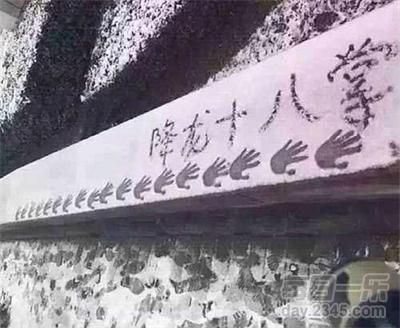 降龙十八掌
每日一乐
day.2345.com